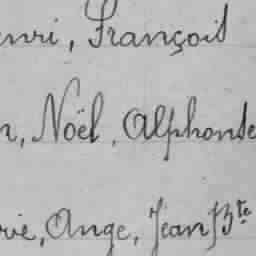 enri, François
n, Noël, Alphonse
rie, Ange, Jean Bte